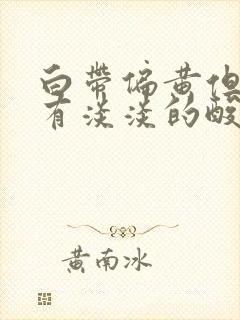 白带偏黄但
有淡淡的酸
黄南冰